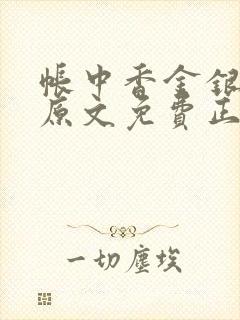 帳中香金銀
原文免費正
一切塵埃